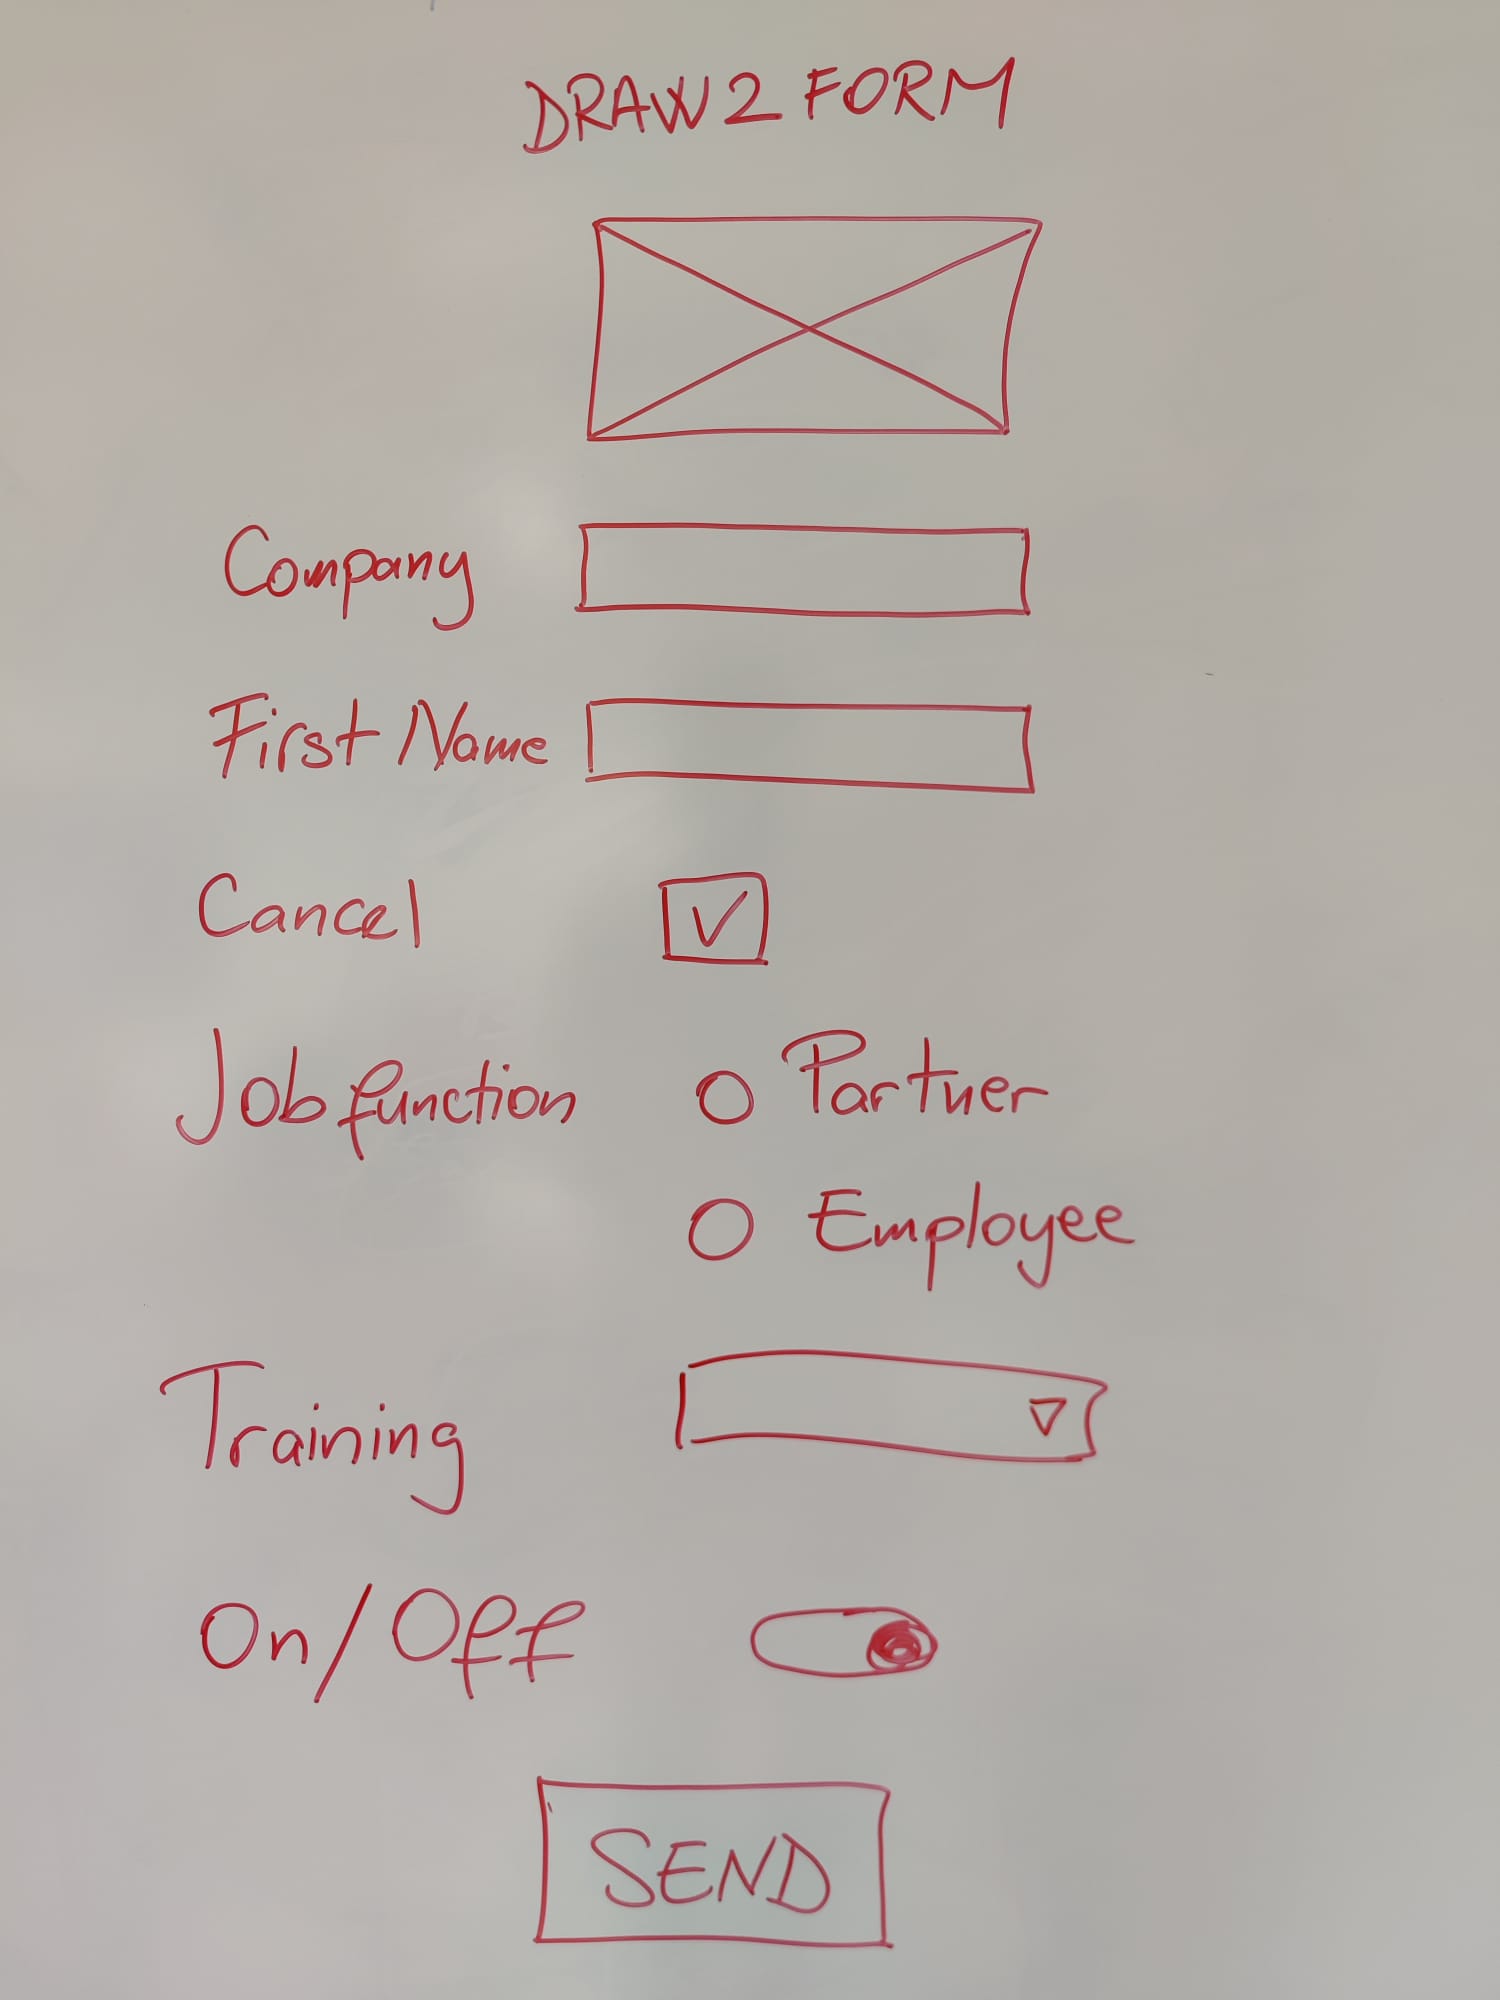 DRAW2FORM
Company
First Name
Cancel
Job function
Partner
Employee
Training
On/Off
SEND